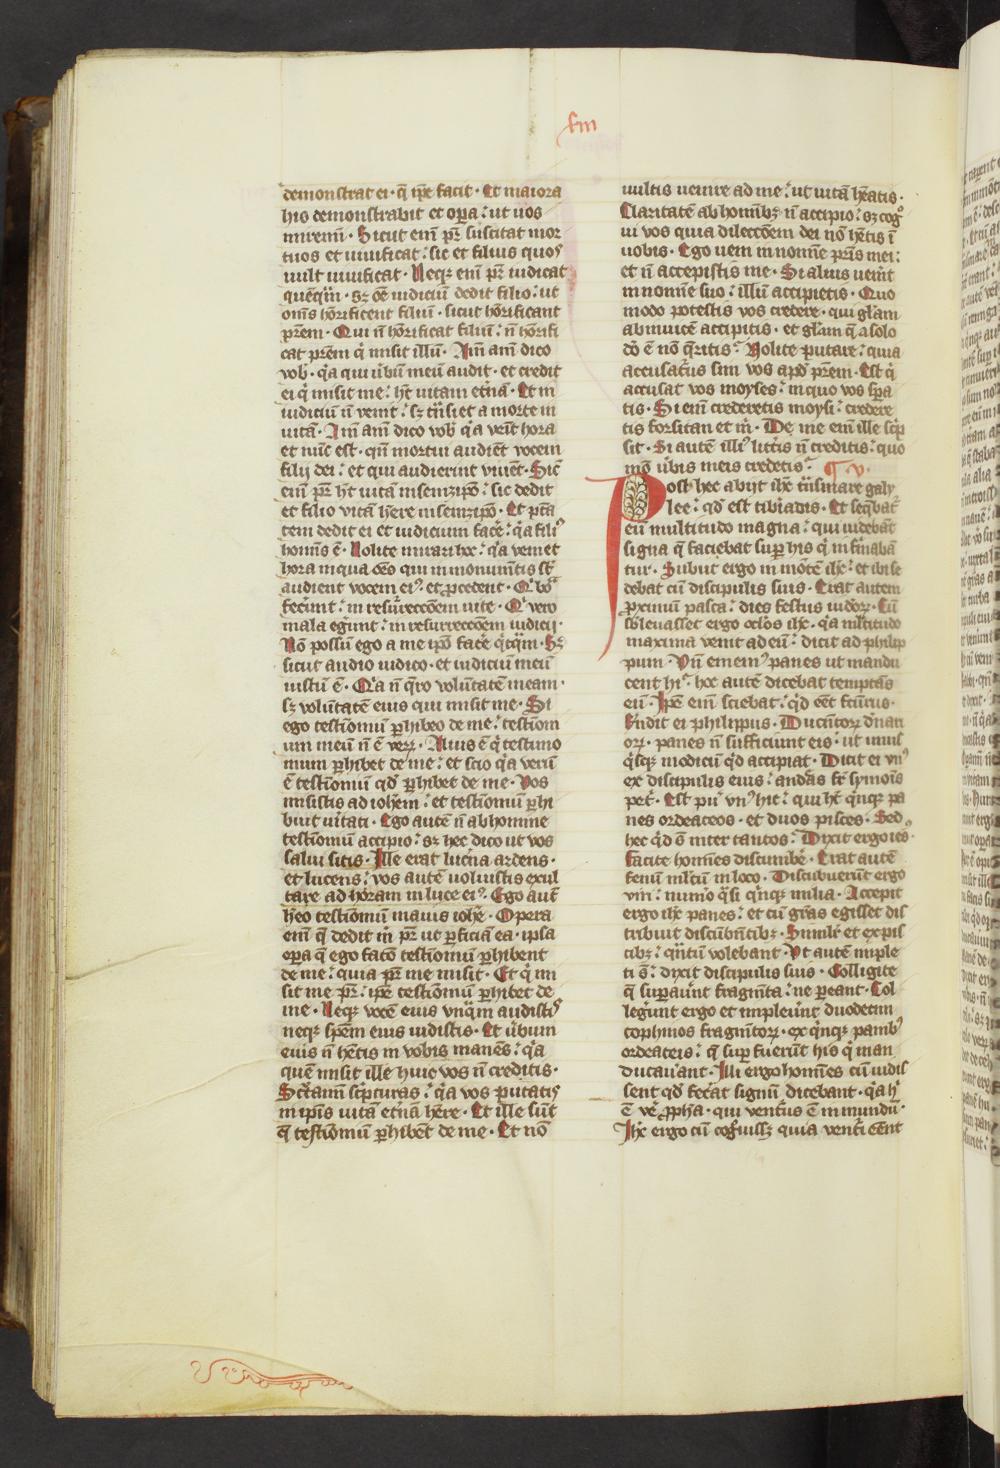 demonstrat ei · q̄ ip̄e facit · Et maiora
his demonstrabit et op̄a : ut uos
miremī · Sicut eni pr̄ suscitat mor
tuos et uiuificat : sic et filius quos
uult uiuificat · Neqȝ eni pr̄ iudicat
quēq̄m · sȝ oē iudiciū dedit filio : ut
om̄s hōrificent filiū · sicut hōrificant
prēm · Qui n̄ hōrificat filiū : n̄ hōrifi
cat prēm q̇ misit illū · Am̄ am̄ dico
vob̄ · q̇a qui ūbū meū audit · et credit
ei q̇ misit me : ht̄ uitam et̄nā · Et in
iudiciū n̄ venit : sȝ tn̄siet a morte in
uitā · Am̄ am̄ dico vob̄ q̇a venit hora
et nūc est · qn̄ mortui audiēt vocem
filij dei : et qui audierint viuēt · Sic̄
eni pr̄ ht̄ uitā in semꝫip̄o : sic dedit
et filio vitā here in semꝫip̄o · Et p̄ta
tem dedit ei et iudicium face᷒ : q̇a filiꝰ
homīs ē · Nolite mirari hoc : q̇a veniet
hora in qua oēs qui in monumētis st̄
audient vocem eiꝰ · et p̱cedent · Qͥ bōͣ
fec̄unt : in resurreccōem uite · Qͥ vero
mala eg̃unt : in resurreccōem iudicij ·
Nō possū ego a me ip̄o face᷒ q̇cq̄m · Sȝ
sicut audio iudico · et iudiciū meū
iustū ē · Q̇a n̄ q̄ro volūtatē meam ·
sȝ volūtatē eius qui misit me · Si
ego testīomiū ꝑhibeo de me : testiom
um meū n̄ ē veꝝ · Alius ē q̇ testimo
nium ꝑhibet de me : et scio q̇a verū
ē testiomiū qd̄ ꝑhibet de me · Vos
misistis ad ioh̄em : et testiomiū ꝑhi
buit ūitati · Ego autē n̄ ab homine
testiomiū accipio : sȝ hec dico ut vos
salui sitis · Ille erat luc̄na ardens ·
et lucens : vos autē voluistis exul
tare ad horam in luce eiꝰ · Ego aut̄
h̄eo testiomiū maius ioh̄e · Opera
eni q̄ dedit m̄ pr̄ ut ꝑficiā ea · ipsa
op̄a q̄ ego facio testiomiū ꝑhibent
de me : quia pr̄ me misit · Et q̇ mi
sit me pr̄ : ip̄e testiomiū ꝑhibet de
me · Neqȝ vocē eius unq̄m audistiꝰ
neqȝ sp̄em eius uidistis · Et ūbum
eius n̄ h̄etis in vobis manēs : q̇a
quē misit ille huic vos n̄ creditis ·
Sc̄tamī sc̄pturas : q̇a vos putatis
in ip̄is uitā et̄nā h̄ere · Et ille sūt
q̄ testiomiū ꝑhibēt de me · Et nō
uultis uenire ad me : ut uitā h̄eatis ·
Claritatē ab hoīmbȝ n̄ accipio : sȝ cogͦ
ui vos quia dileccōem dei nō h̄etis ī
uobis · Ego ueni in nomīe pr̄is mei :
et n̄ accepistis me · Si alius uenīt
in nomīe suo : illū accipietis · Quo
modo potestis vos credere · qui gl̄am
ab inuicē accipitis · et gl̄am q̄ a solo
do̅ ē nō q̄ritis : Nolite putare : quia
accusatur̄us sim vos apd̄ pr̄em · Est q̇
accusat vos moyses : in quo vos sp̄a
tis · Si eni crederetis moysi : credere
tis forsitan et m̄ · De me eni ille scp̄
sit · Si autē illiꝰ litt̄is n̄ creditis : quo
mō ūbis meis credetis : ¶ v ·
Post hec abijt ih̄c tn̄s mare galy
lee : qd̄ est tibiadis · Et seq̄bat᷒
eū multitudo magna : qui uidebāt
signa q̄ faciebat sup̄ his q̇ infirmabā
tur · Subijt ergo in mōtē ih̄c : et ibi se
debat cū discipulis suis · Erat autem
ꝓximū pasca : dies festus iudeoꝝ · Cū
sb̄leuasset ergo oc̄los ih̄c · q̇a mltitudo
maxima venit ad eū : dicit ad philip
pum · Vn̄ ememꝰ panes ut mandu
cent hiͥ · hoc autē dicebat temptās
eū · Ip̄e eni sciebat : qd̄ eēt fc̄urus ·
Rn̄dit ei philippus · Ducntoꝝ d̄nari
oꝝ · panes n̄ sufficiunt eis : ut unus
q̇sqȝ modicū qd̄ accipiat · Dicit ei vnꝰ
ex discipulis eius : andr̄as fr̄ symōis
pet᷒ · Est puͬ vnꝰ hic : qui ht̄ q̇nqȝ pa
nes ordeaceos · et duos pisces · Sed
hec qͥd s̄ inter tantos : Dixit ergo ies̄ ·
facite homīes discumbe᷒ · Erat autē
fenū mltū in loco · Discubuerūt ergo
viri : num̄o q̇si q̇nqȝ milia · Accepit
ergo ih̄c panes : et cū gr̄as egisset dis
tribuit discūbn̄tibȝ · Similr̄ et ex pis
cibȝ : qn̄tū volebant · Vt autē imple
ti s̄ : dixit discipulis suis · Colligite
q̄ sup̄au᷒nt fragm̄ta : ne ꝑeant · Col
leg᷒unt ergo et impleu᷒nt duodecim
cophinos fragm̄toꝝ · ex q̇nqȝ panibꝰ
ordeaceis : q̄ sup̄fuerūt his q̇ man
ducau᷒ant · Illi ergo homīes cū uidis
sent qd̄ fec᷒at signū dicebant · q̇a hͥ
ē ve᷒ ꝓph̄a · qui ventur̄us ē in mundū ·
Ih̄c ergo cū cog̃uissȝ quia vent᷒i eēnt